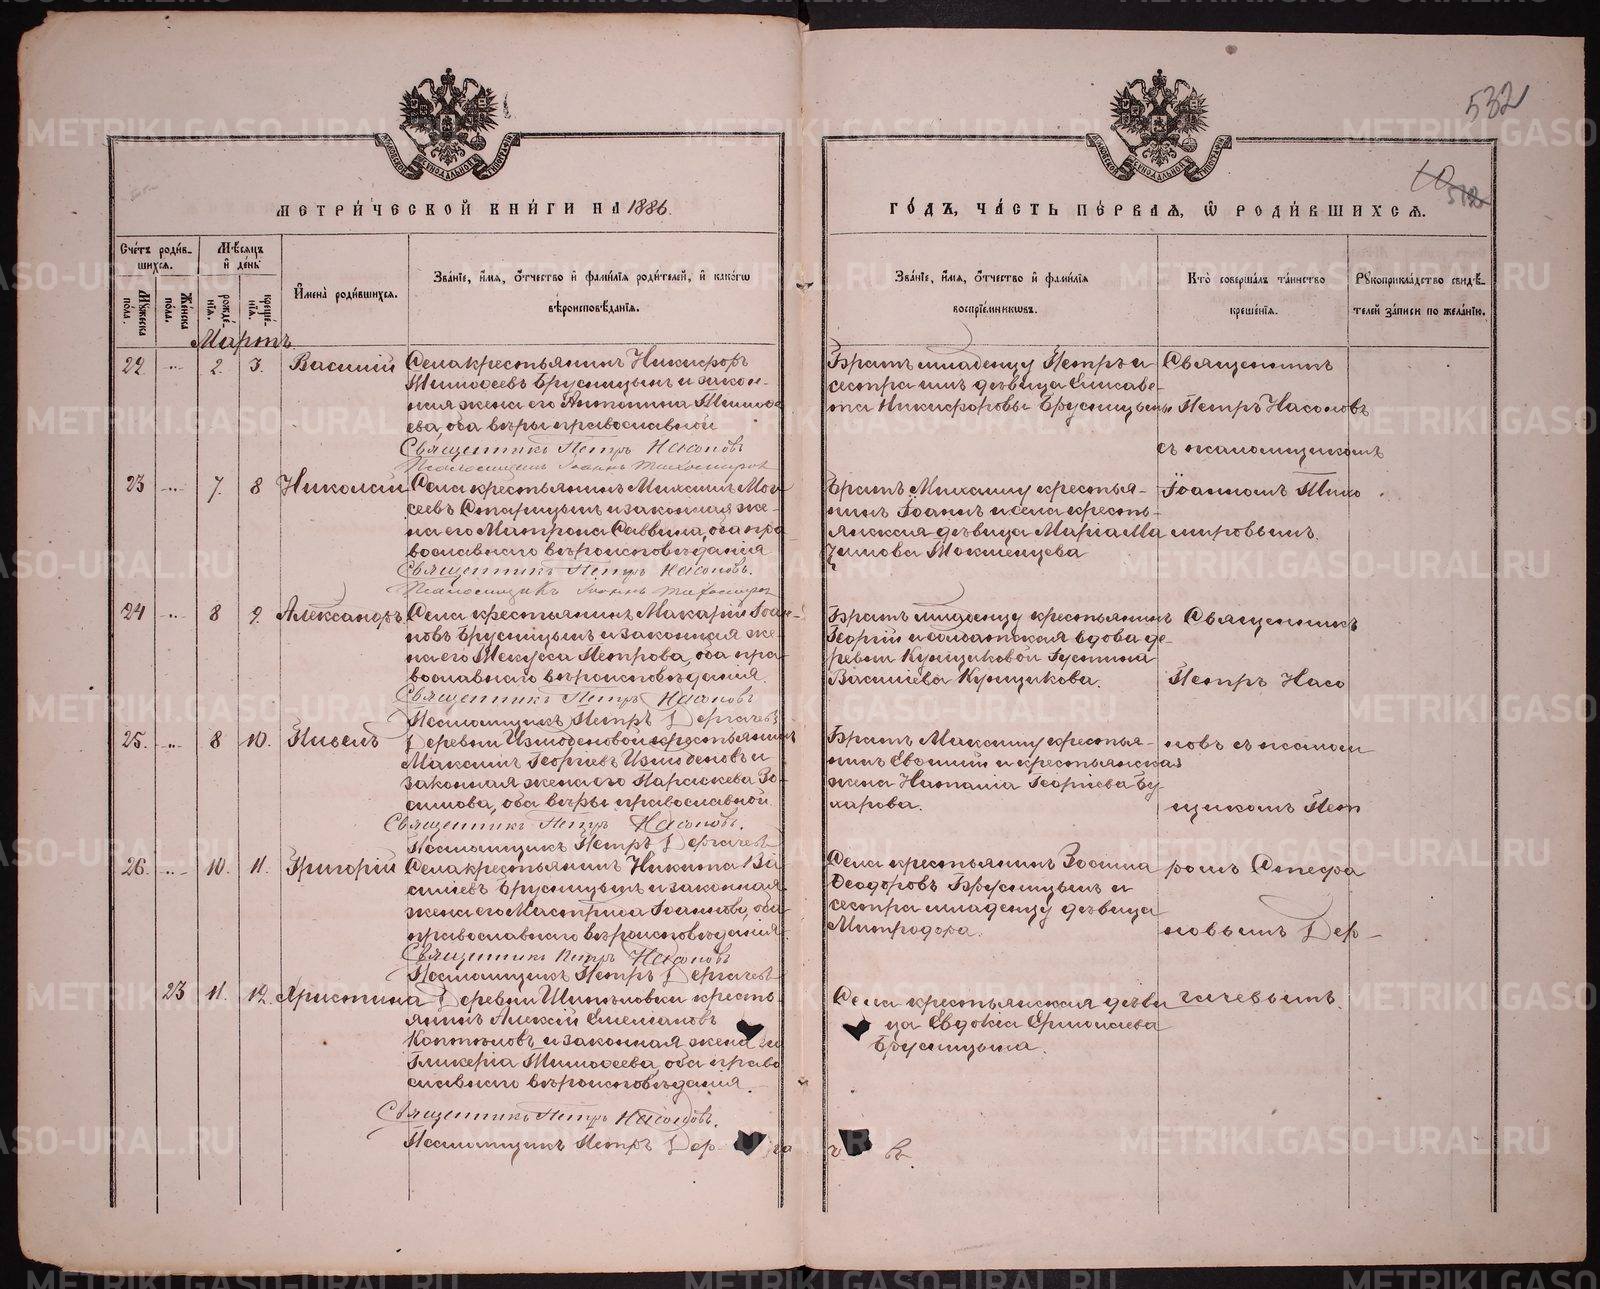 532
10
512
МЕТРИЧЕСКОЙ КНИГИ НА 1886
ГОДЪ, ЧАСТЬ ПЕРВАЯ, Ѡ РОДИВШИХСѦ.
Счетъ родив-
шихся.
Мѣсяцъ
и день
Мужеска пола.
Женска пола.
рожде-
нія.
креще-
нія.
Имена родившихся.
Званіе, имя, отчество и фамилія родителей, и какогѡ
вѣроисповѣданія.
Званіе, имя, отчество и фамилія
воспріемниковъ.
Кто совершалъ таинство
крещенія.
Рукоприкладство свидѣ-
телей записи по желанію.
Мартъ.
22 ... 2. 3. Василій
Села крестьянинъ Никифоръ
Тимоѳеевъ Брусницынъ и закон-
ная жена его Антонина Тимоѳе
ева, оба вѣры православной
Священникъ Петръ Насоновъ
Псаломщикъ Іоаннъ Тихомировъ
Братъ младенцу Петръ и
сестра имъ дѣвица Елисаве-
та Никифоровы Брусницыны
Священникъ
Петръ Насоновъ
съ псаломщикомъ
23 ... 7. 8 Николай
Села крестьянинъ Михаилъ Мои
сеевъ Старицынъ и законная же-
на его Матрона Саввина, оба пра
вославнаго вѣроисповѣданія
Священникъ Петръ Насоновъ.
Псаломщикъ Іоаннъ Тихомировъ
Братъ Михаилу крестья-
нинъ Іоаннъ и села кресть-
янская дѣвица Марія Ма
Мокшенцева
Іоанномъ Тихо
мировымъ.
24 ... 8 9. Александръ
Села крестьянинъ Макарій Іоан-
новъ Брусницынъ и законная же-
на его Петрова, оба пра-
вославнаго вѣроисповѣданія.
Священникъ Петръ Насоновъ
Псаломщикъ Петръ Дергачевъ
Братъ младенцу крестьянинъ
Георгій и солдатская вдова де-
ревни Кунщиковой Іустина
Василіева Кунщикова.
Священникъ
Петръ Насо
25. ... 8 10. Павелъ
Деревни Измоденовой крестьянинъ
Максимъ Георгіевъ Измоденовъ и
законная жена его Параскева Зо-
симова, оба вѣры православной.
Священникъ Петръ Насоновъ.
Псаломщикъ Петръ Дергачевъ
Братъ Максиму крестья-
нинъ Евѳимій и крестьянская
жена Наталія Георгіева Бу-
ларова.
новъ съ псалом
щикомъ Пет
26. ... 10. 11. Григорій
Села крестьянинъ Никита Ва
силіевъ Брусницынъ и законная
жена его Мастридія Іоаннова, оба
православнаго вѣроисповѣданія.
Священникъ Петръ Насоновъ
Псаломщикъ Петръ Дергачевъ
Села крестьянинъ Зосима
Ѳеодоровъ Брусницынъ и
сестра младенцу дѣвица
Митродора.
ромъ Стефа
новымъ Дер-
23 11. 12. Христина
Деревни Шипѣловки кресть-
янинъ Алексій Емеліановъ
Коптѣловъ и законная жена
Гликерія Тимоѳеева, оба право
славнаго вѣроисповѣданія.
Священникъ Петръ Насоновъ.
Псаломщикъ Петръ Дер
Села крестьянская дѣви
ца Евдокія Ермолаева
Брусницына.
гачевымъ.
METRIKI.GASO-URAL.RU